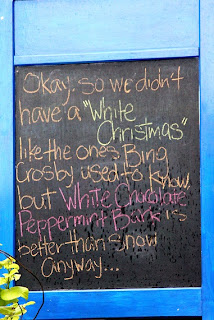 Okay. so we didn't
have a "White
Christmas"
like the ones Bing
Crosby used to know,
but White Chocolate
Peppermint Bark is
better than snow
anyway...